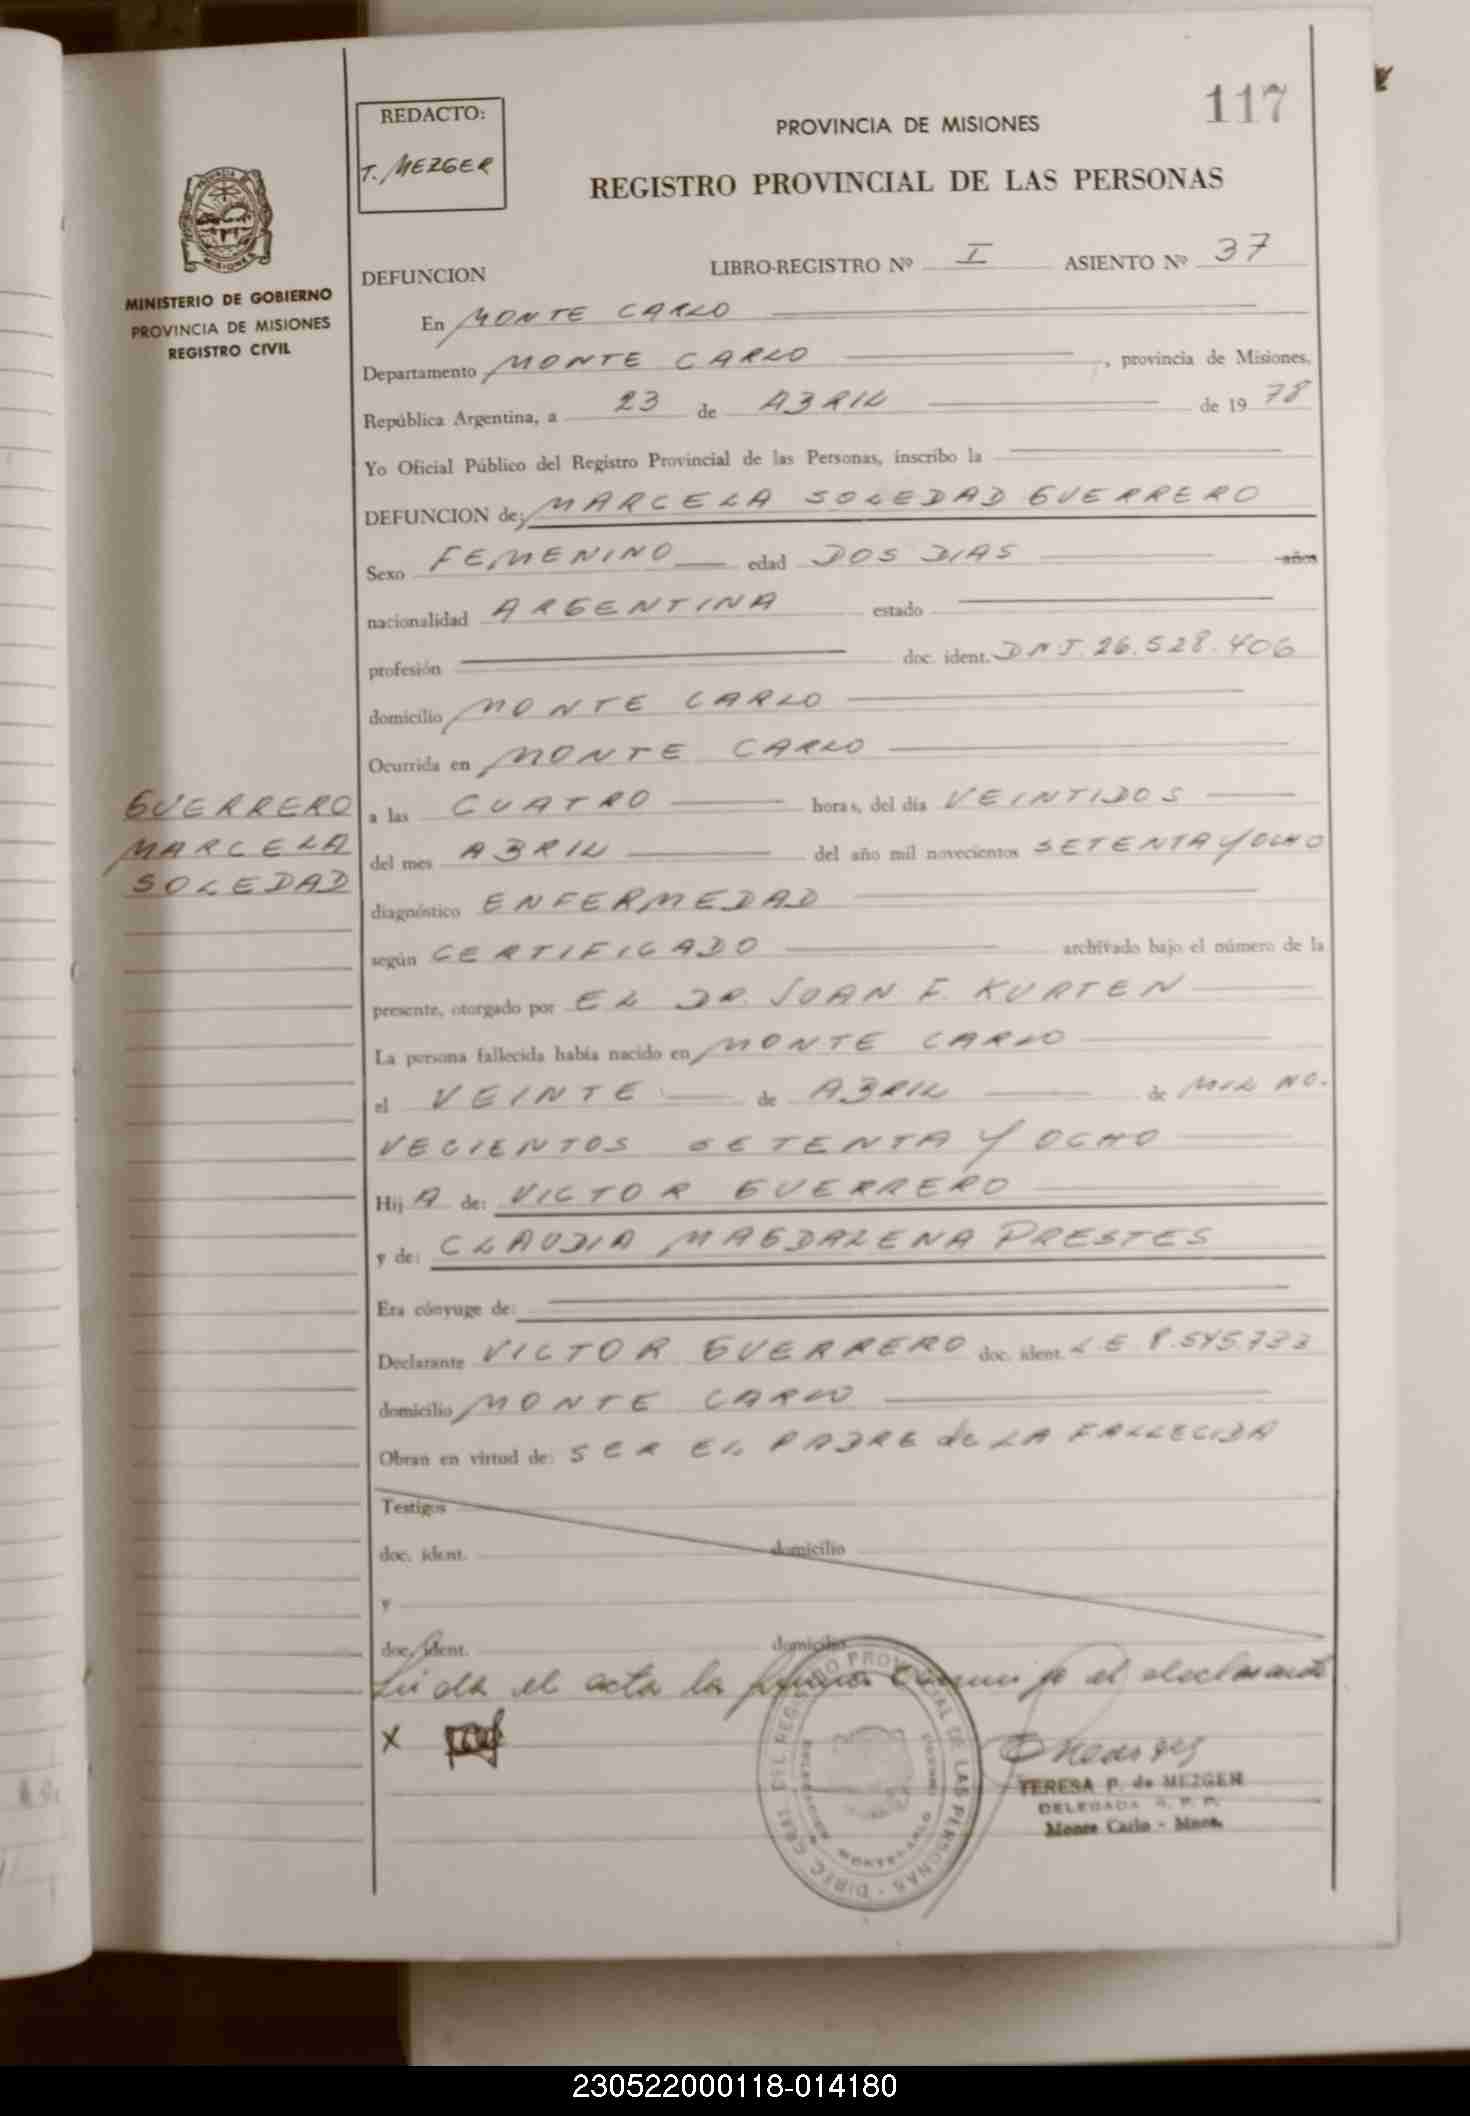 117
REDACTO:
T. MEZGER
PROVINCIA DE MISIONES
REGISTRO PROVINCIAL DE LAS PERSONAS
MINISTERIO DE GOBIERNO
PROVINCIA DE MISIONES
REGISTRO CIVIL
DEFUNCION LIBRO-REGISTRO Nº I ASIENTO Nº 37
En MONTE CARLO
Departamento MONTE CARLO, provincia de Misiones,
República Argentina, a 23 de ABRIL de 1978
Yo Oficial Público del Registro Provincial de las Personas, inscribo la
DEFUNCION de: MARCELA SOLEDAD GUERRERO
Sexo FEMENINO edad DOS DIAS años
nacionalidad ARGENTINA estado
profesión doc. ident. DNI. 26.528.406
domicilio MONTE CARLO
Ocurrida en MONTE CARLO
GUERRERO
MARCELA
SOLEDAD
a las CUATRO horas, del día VEINTIDOS
del mes ABRIL del año mil novecientos SETENTA Y OCHO
diagnóstico ENFERMEDAD
según CERTIFICADO archivado bajo el número de la
presente, otorgado por EL DR. JUAN F. KURTEN
La persona fallecida había nacido en MONTE CARLO
el VEINTE de ABRIL de MIL NO.
VECIENTOS SETENTA Y OCHO
Hij A de: VICTOR GUERRERO
y de: CLAUDIA MAGDALENA PRESTES
Era cónyuge de:
Declarante VICTOR GUERRERO doc. ident. LE 8.545.733
domicilio MONTE CARLO
Obran en virtud de: SER EL PADRE de LA FALLECIDA
Testigos
doc. ident. domicilio
y
doc. ident. domicilio
Leida el acta la firma conmigo el declarante
X
DIREC. GRAL. DEL REGISTRO PROVINCIAL DE LAS PERSONAS
MONTECARLO
TERESA P. de MEZGER
DELEGADA R. P. P.
Monte Carlo - Mnes.
230522000118-014180